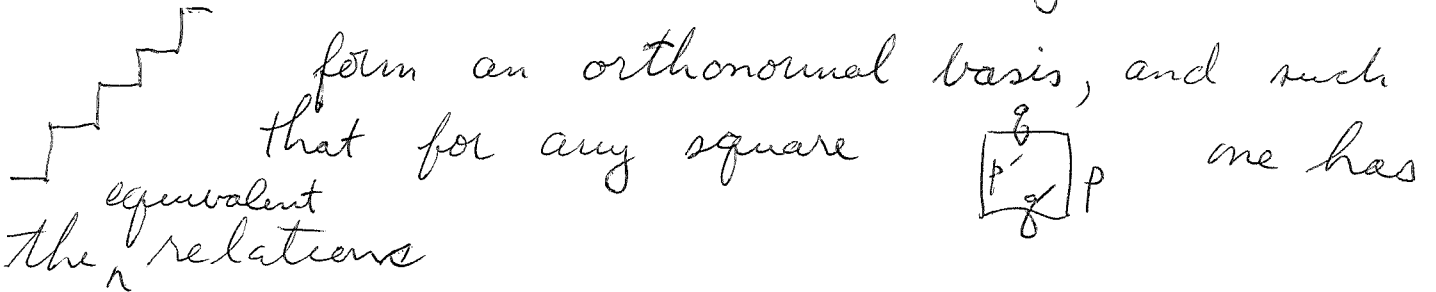 form an orthonormal basis, and such
that for any square q p' q' p one has
the equivalent relations